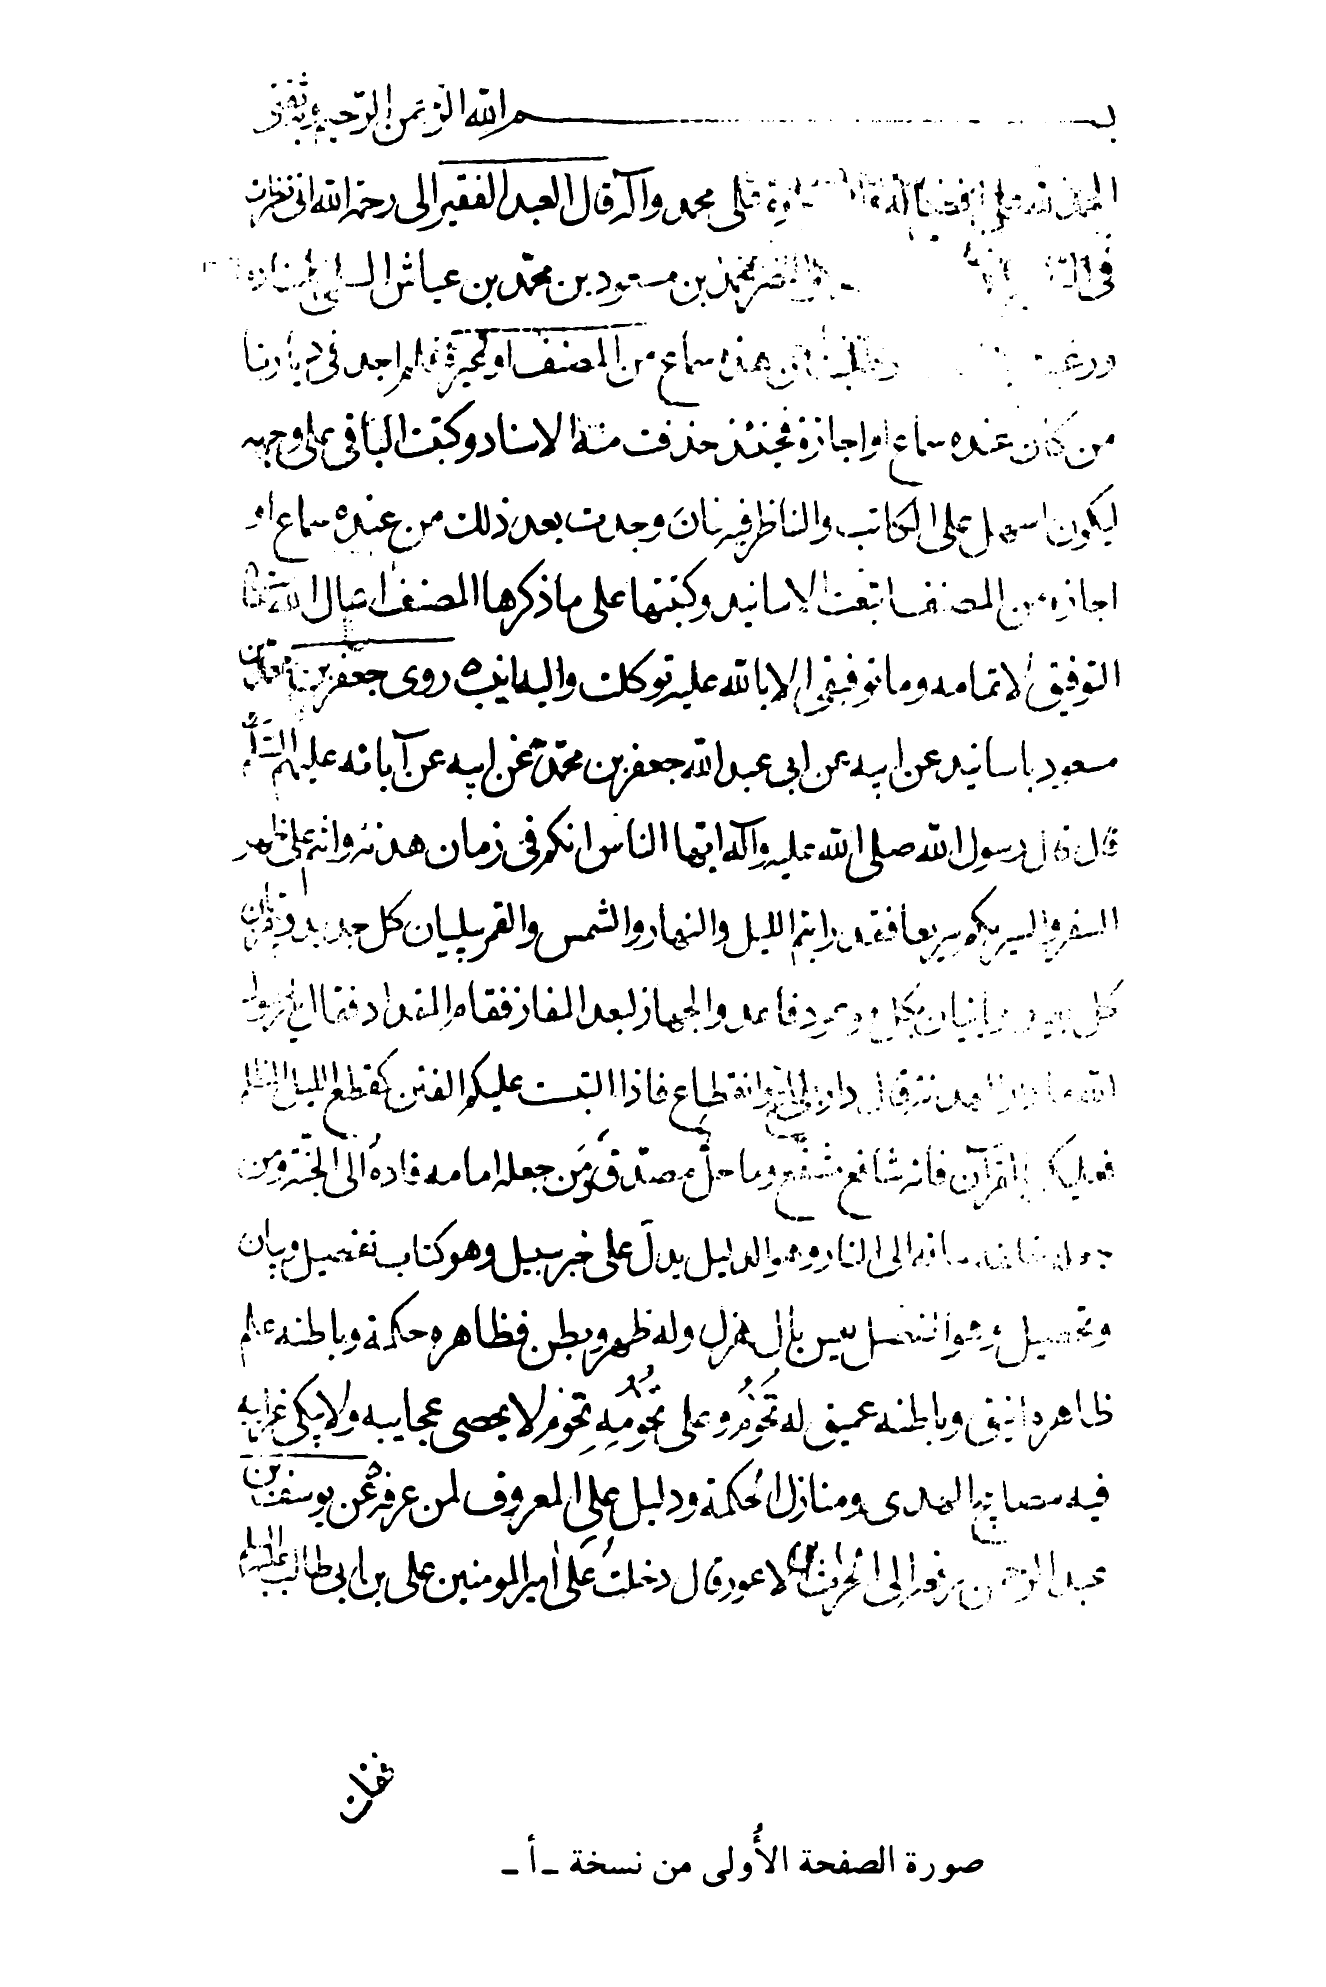 بسم الله الرحمن الرحيم وبه ثقتي
الحمد لله على افضاله والصلوة على محمد وآله قال العبد الفقير الى رحمة الله انى نظرت
فى محمد بن مسعود بن محمد بن عياش السلمى باسناده
ورغبت وطلبت من عنده سماع من المصنف او غيره فلم اجد فى ديارنا
من كان عنده سماع او اجازة فحينئذ حذفت منه الاسناد وكتبت الباقى على وجهه
ليكون اسهل على الكاتب والناظر فيه فان وجدت بعد ذلك من عنده سماع او
اجازه من المصنف اتبعت الاسانيد وكتبتها على ما ذكرها المصنف اسال الله تعالى
التوفيق لاتمامه وما توفيقى الا بالله عليه توكلت واليه انيب روى جعفر بن محمد بن
مسعود باسانيده عن ابيه عن ابى عبد الله جعفر بن محمد عن ابيه عن آبائه عليهم السلام
قال قال رسول الله صلى الله عليه وآله ايها الناس انكم فى زمان هدنة وانتم على ظهر
السفر والسير بكم سريع فقد رايتم الليل والنهار والشمس والقمر يبليان كل جديد ويقربان
كل بعيد وياتيان بكل موعود فاعدوا الجهاز لبعد المفاز فقام المقداد فقال يا رسول
الله ما دار الهدنة قال دار بلاغ وانقطاع فاذا التبست عليكم الفتن كقطع الليل المظلم
فعليكم بالقرآن فانه شافع مشفع وماحل مصدق ومن جعله امامه قاده الى الجنة ومن
جعله خلفه ساقه الى النار وهو الدليل يدل على خير سبيل وهو كتاب تفصيل وبيان
وتحصيل وهو الفصل ليس بالهزل وله ظهر وبطن فظاهره حكمة وباطنه علم
ظاهره انيق وباطنه عميق له تخوم وعلى تخومه تخوم لا يحصى عجايبه ولا يبلى غرايبه
فيه مصابيح الهدى ومنازل الحكمة ودليل على المعروف لمن عرفه عن يوسف بن
عبد الرحمن رفعه الى الحارث الاعور قال دخلت على امير المومنين على بن ابى طالب عليه السلام
فقلت
صورة الصفحة الأُولى من نسخة ـ أ ـ